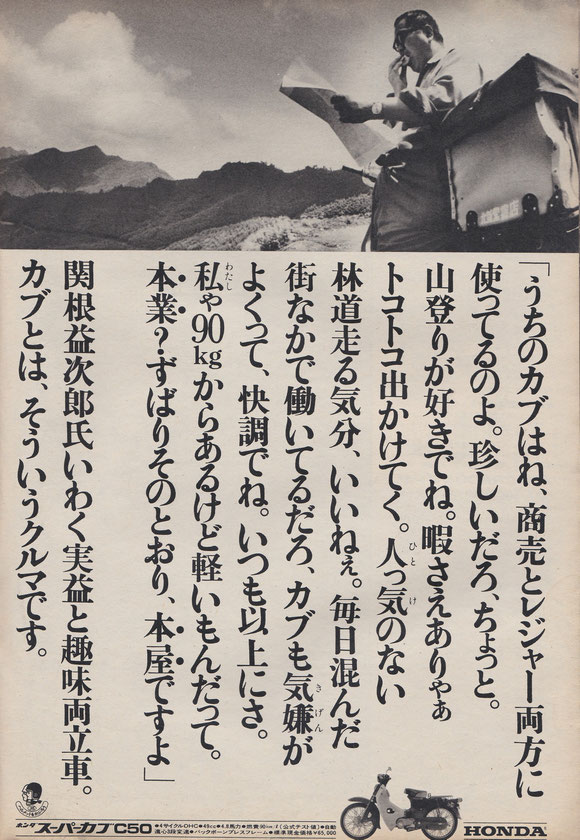 「うちのカブはね、商売とレジャー両方に
使ってるのよ。珍しいだろ、ちょっと。
山登りが好きでね。暇さえありゃぁ
トコトコ出かけてく。人っ気のない
林道走る気分、いいねぇ。毎日混んだ
街なかで働いてるだろ、カブも気嫌が
よくって、快調でね。いつも以上にさ。
私ゃ90kgからあるけど軽いもんだって。
本業?ずばりそのとおり、本屋ですよ」
関根益次郎氏いわく実益と趣味両立車。
カブとは、そういうクルマです。
ホンダ スーパーカブC50
●4サイクルOHC●49cc●4.8馬力●燃費90km/ℓ(公式テスト値)●自動
遠心3段変速●バックボーンプレスフレーム●標準現金価格¥65,000
HONDA